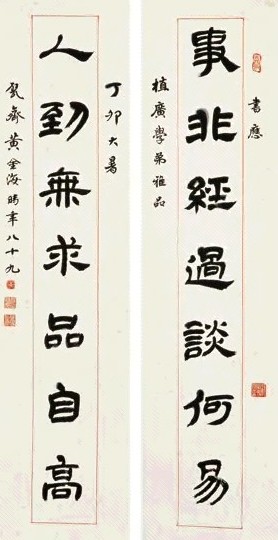 書應
事非經過談何易
植廣學弟雅品
丁卯大暑
人到無求品自高
齋黃金海時年八十九